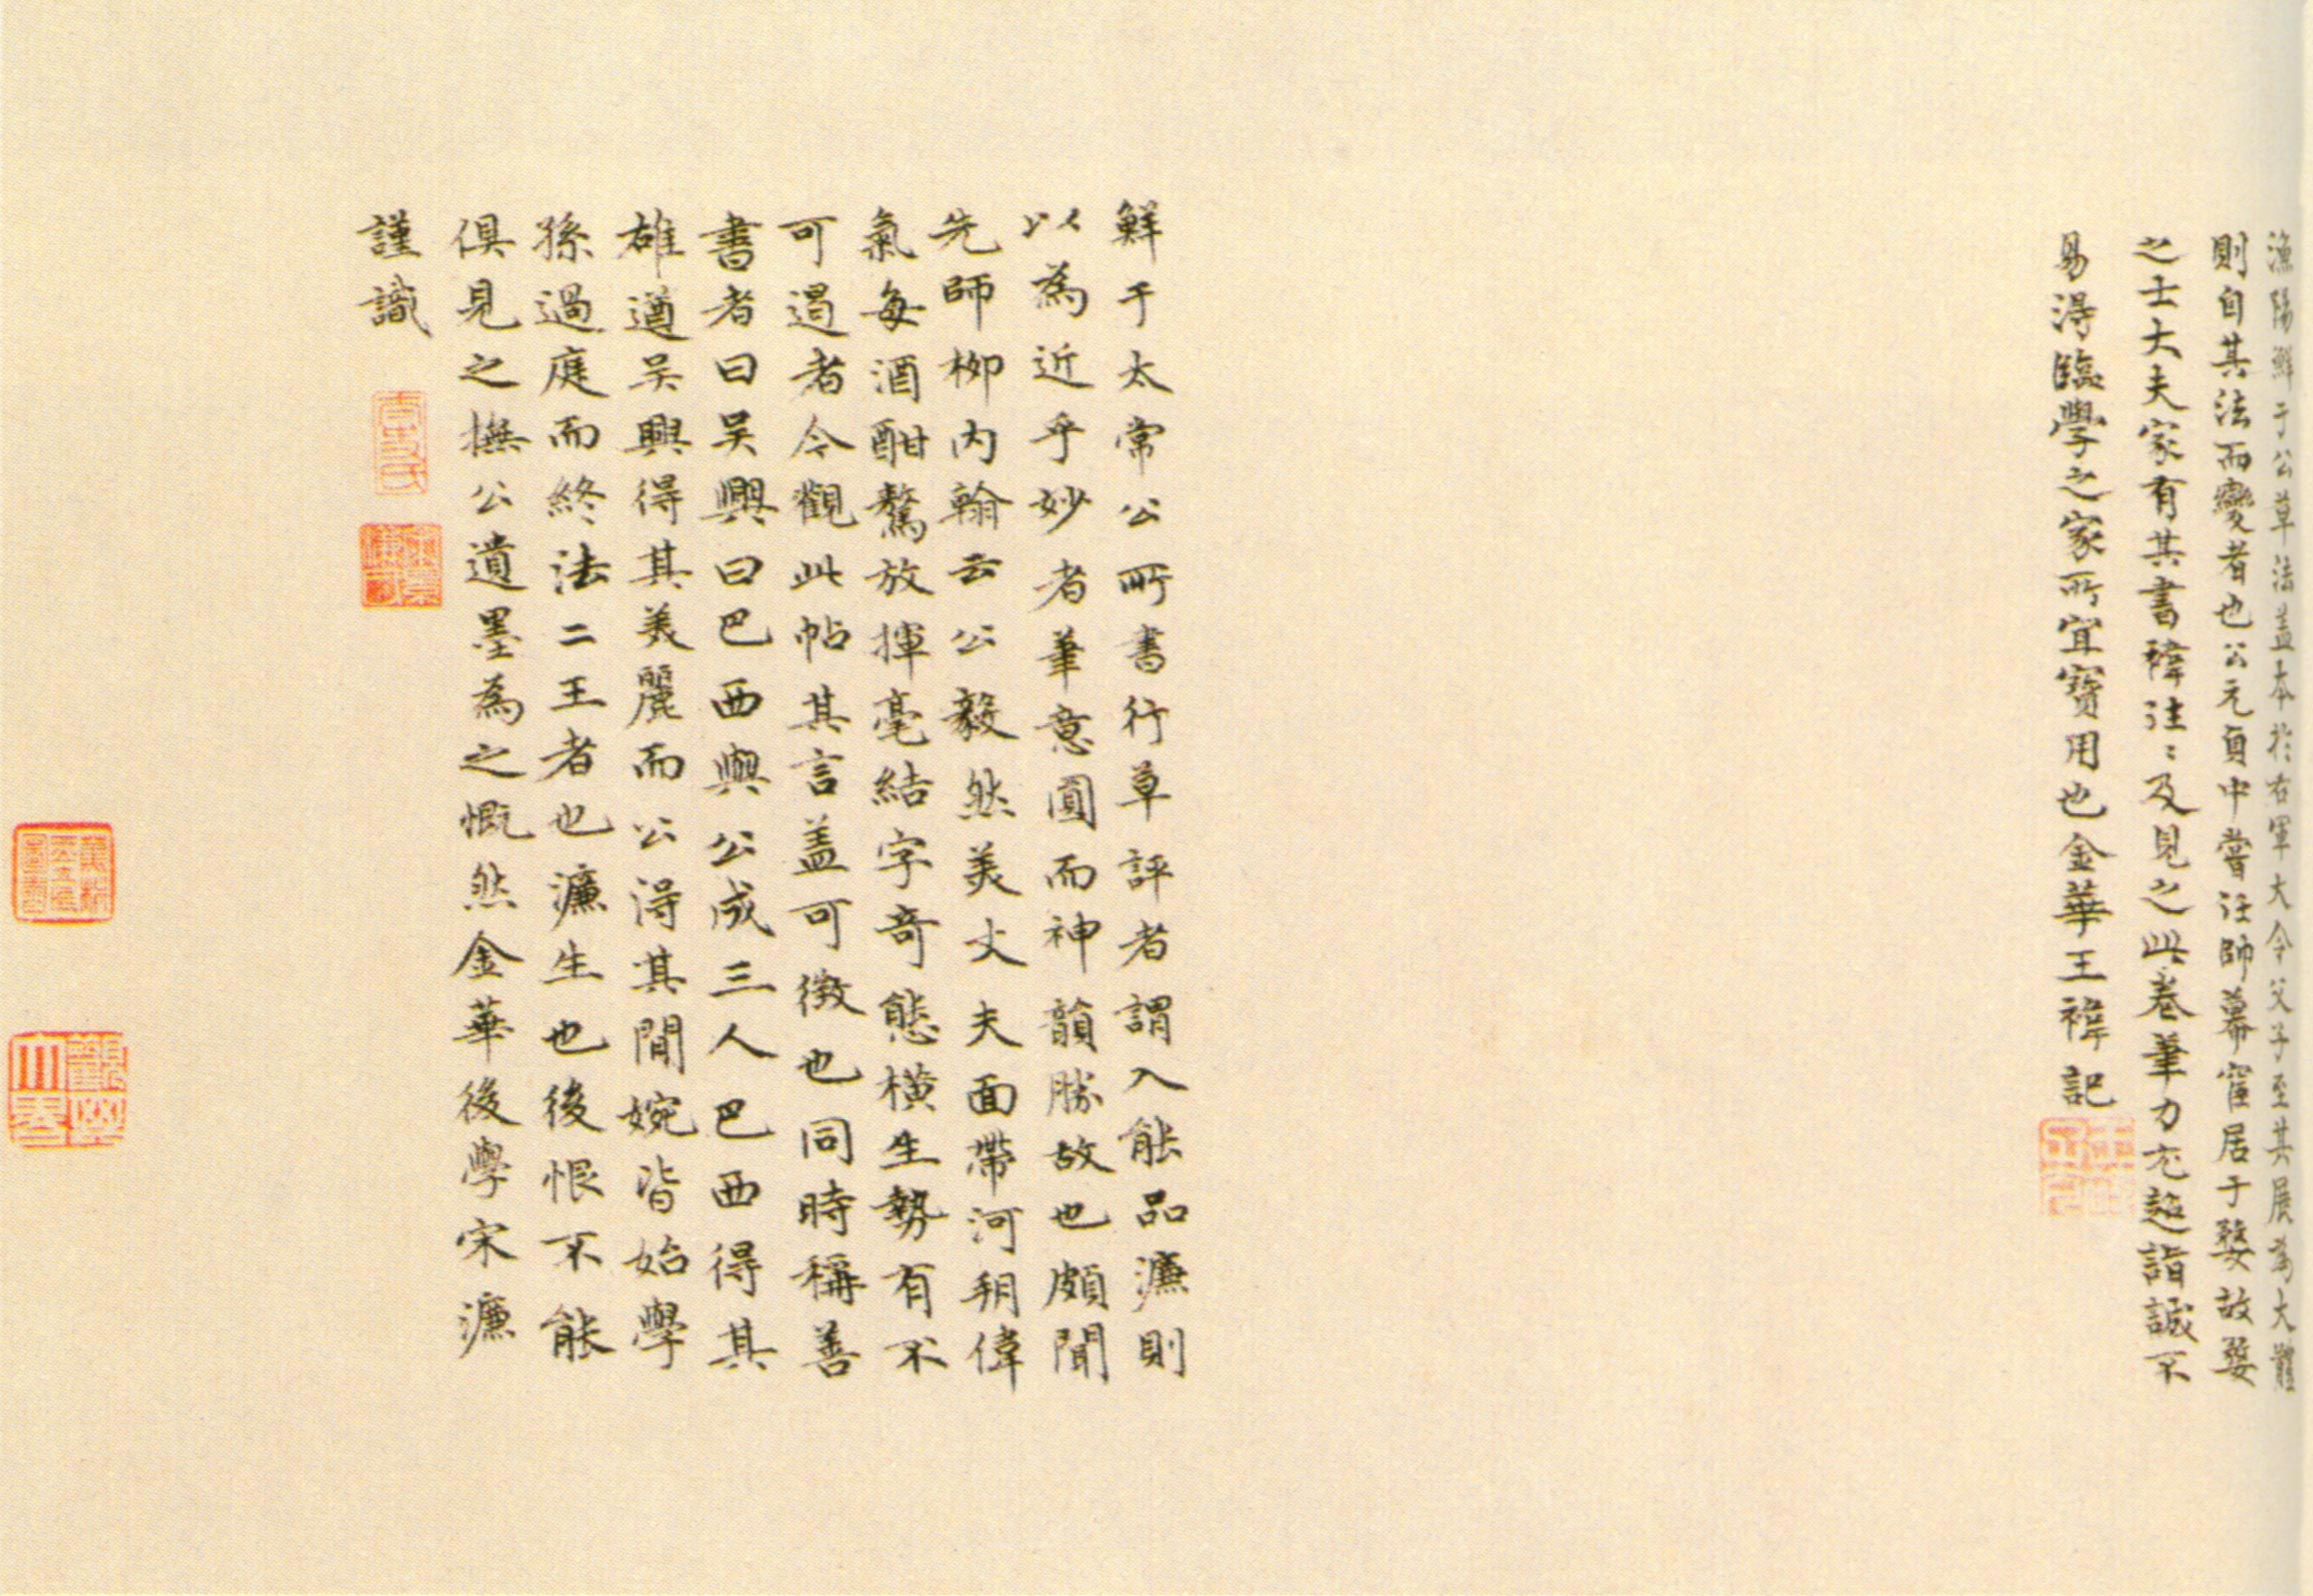 漁陽鮮于公草法蓋本於右軍大令父子至其展為大體
則自其法而變者也公元貞中嘗任帥幕寓居于婺故婺
之士大夫家有其書禕往〻及見之此卷筆力尤超詣誠不
易得臨學之家所宜寶用也金華王禕記
鮮于太常公所書行草評者謂入能品濂則
以為近乎妙者筆意圓而神韻勝故也頗聞
先師柳內翰云公毅然美丈夫面帶河朔偉
氣每酒酣驁放揮毫結字奇態橫生勢有不
可遏者今觀此帖其言蓋可徵也同時稱善
書者曰吳興曰巴西與公成三人巴西得其
雄遒吳興得其美麗而公得其閒婉皆始學
孫過庭而終法二王者也濂生也後恨不能
俱見之撫公遺墨為之慨然金華後學宋濂
謹識